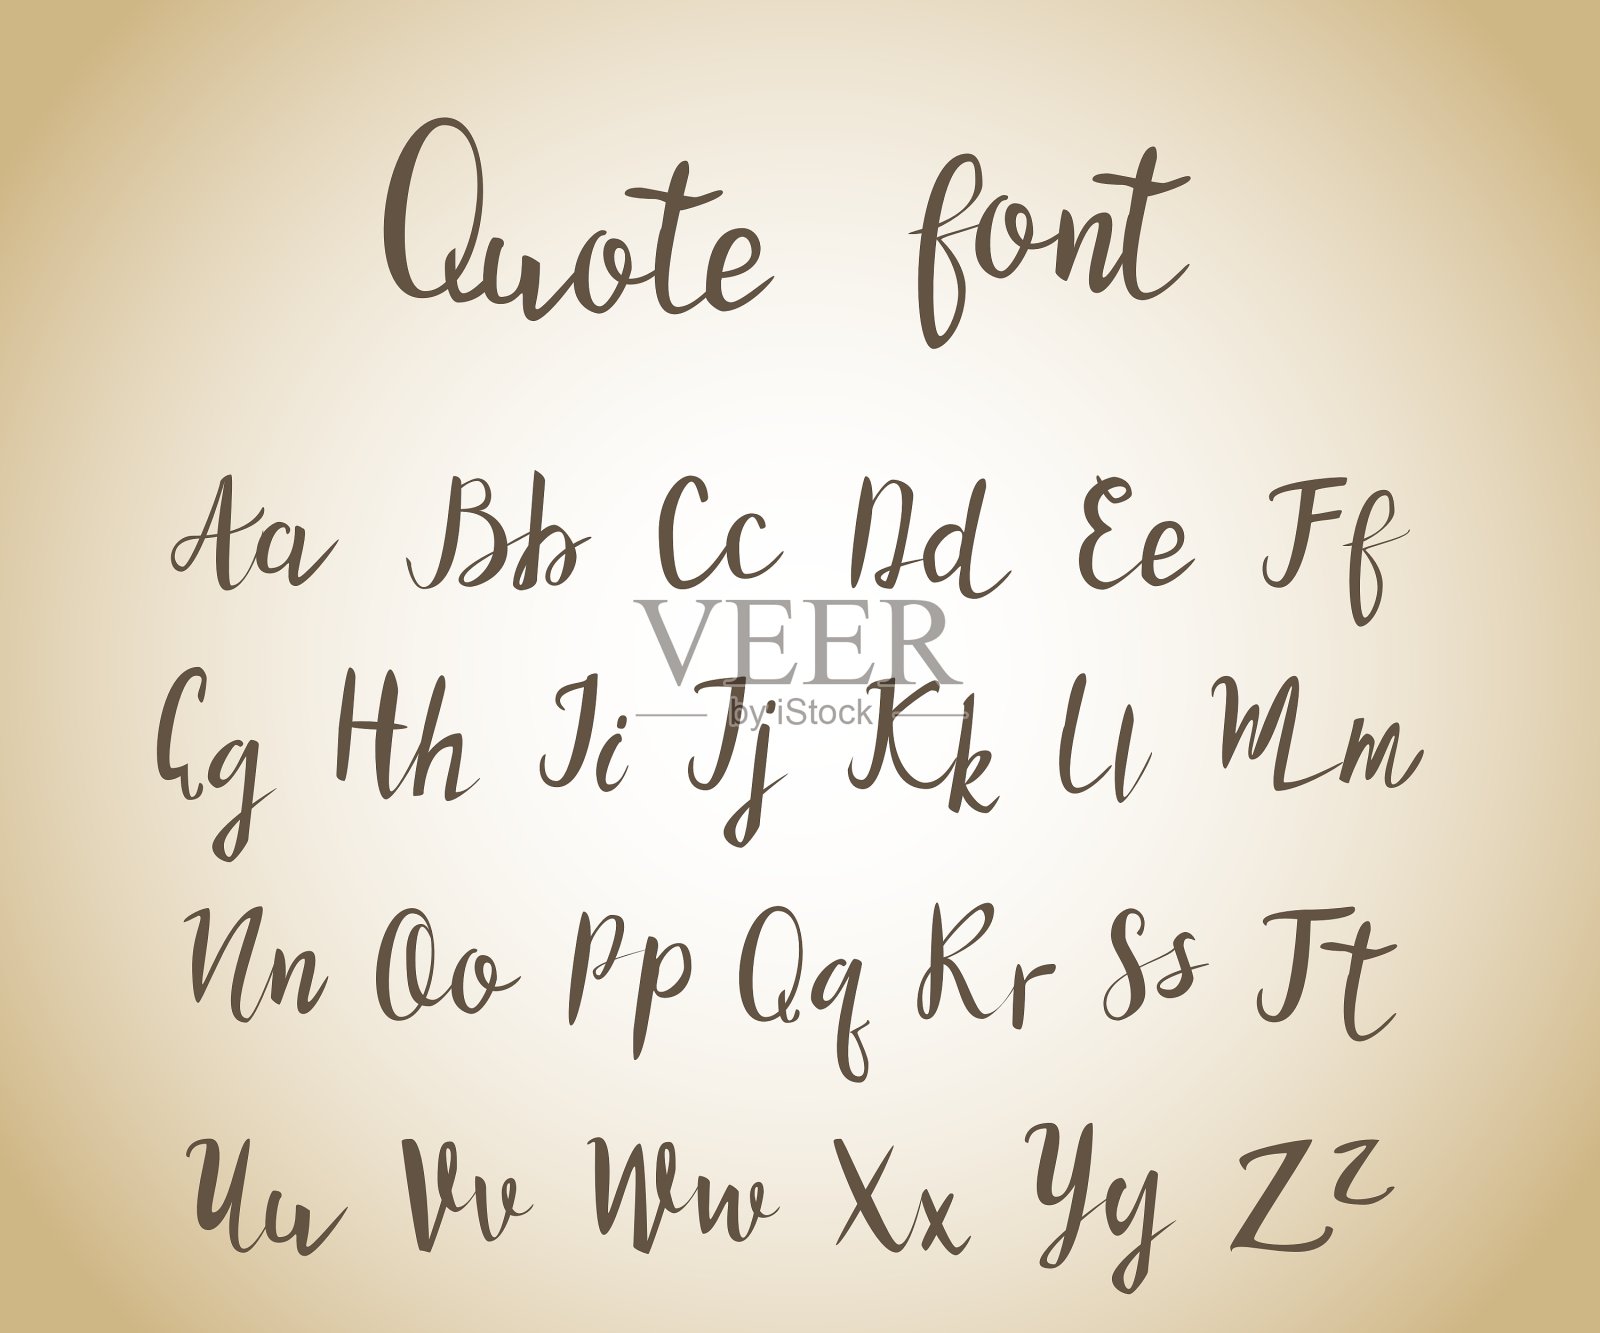 Quote font
Aa Bb Cc Dd Ee Ff
VEER
Gg Hh Ii Jj Kk Ll Mm
by iStock
Nn Oo Pp Qq Rr Ss Tt
Uu Vv Ww Xx Yy Zz